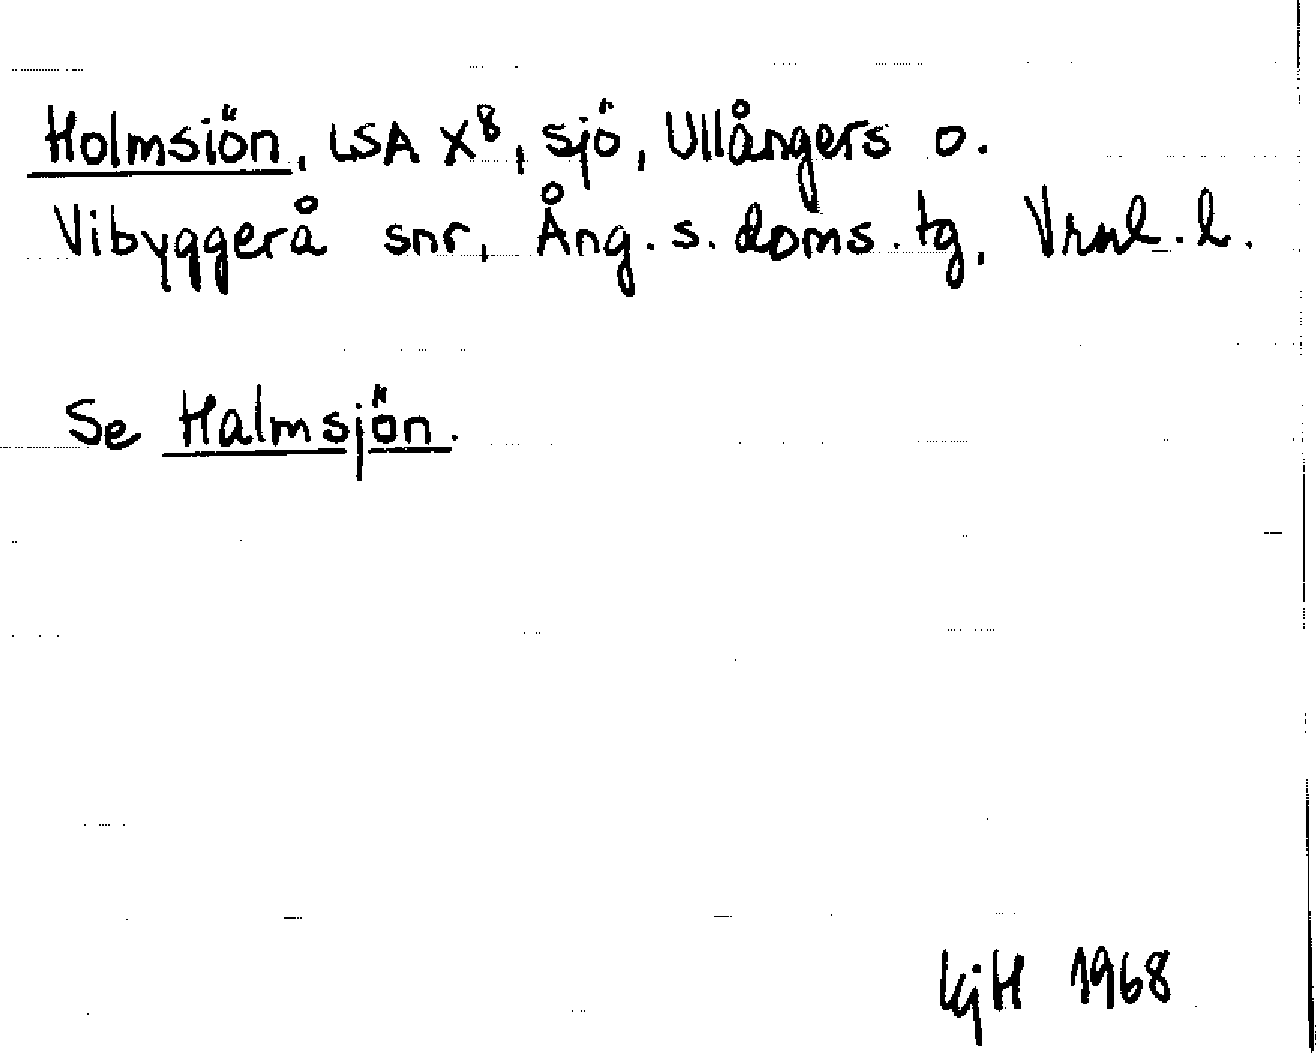 Holmsiön, LSA X8, sjö, Ullångers o.
Vibyggerå snr, Ång. s. doms. tg, Vrnl. l.
Se Halmsjön.
KjH 1968